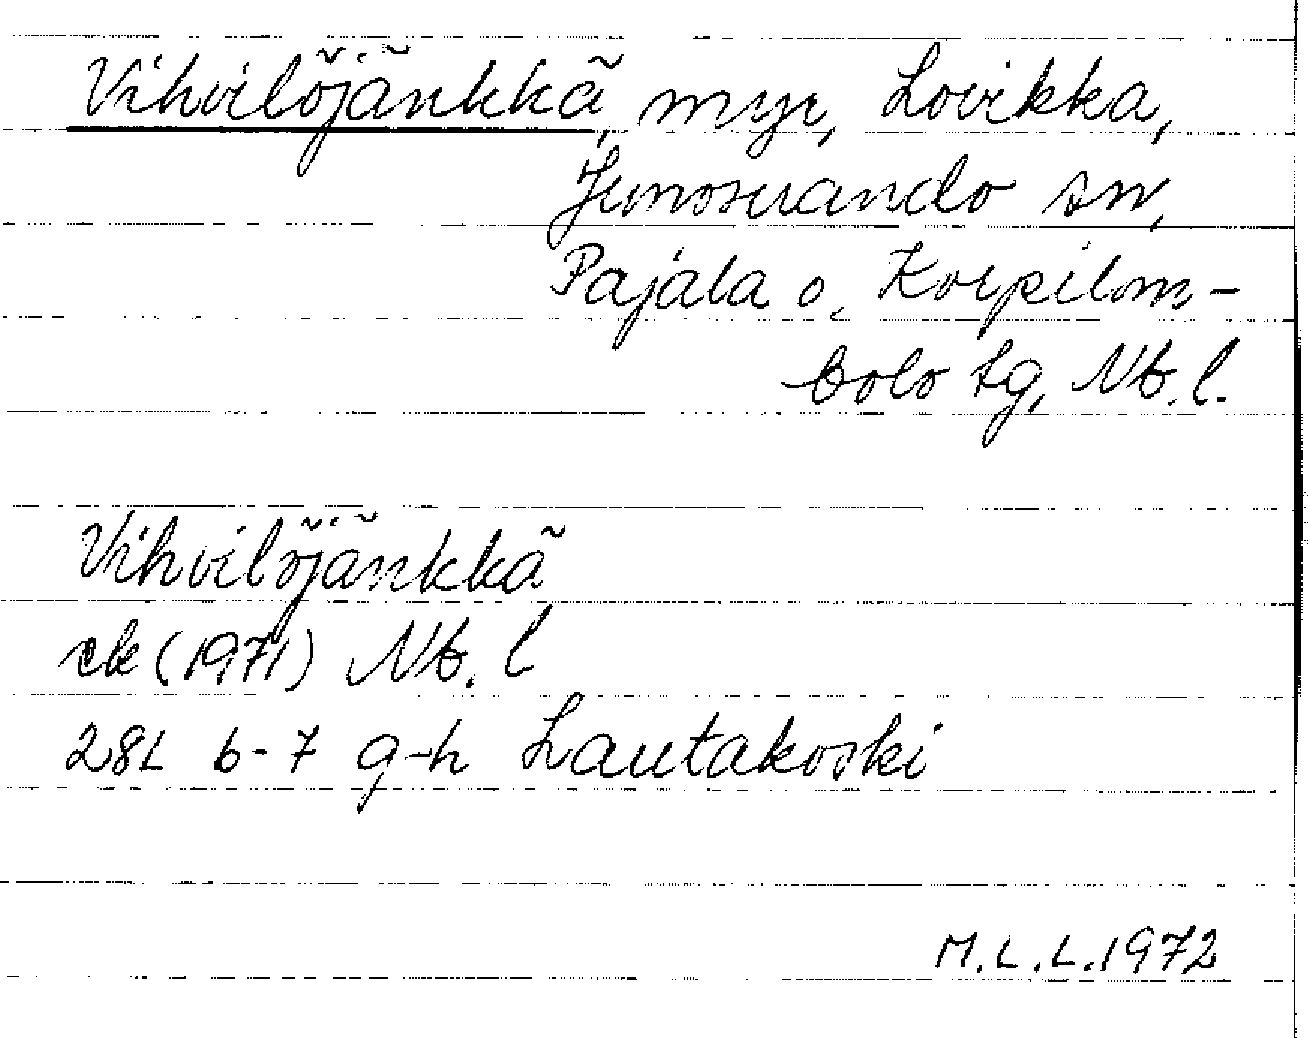 Vihvilöjänkkä, myr, Lovikka,
Junosuando sn,
Pajala o, Korpilom-
bolo tg, Nb. l.
Vihvilöjänkkä
ek (1971) Nb. l
28L 6-7 g-h Lautakoski
M.L.L. 1972